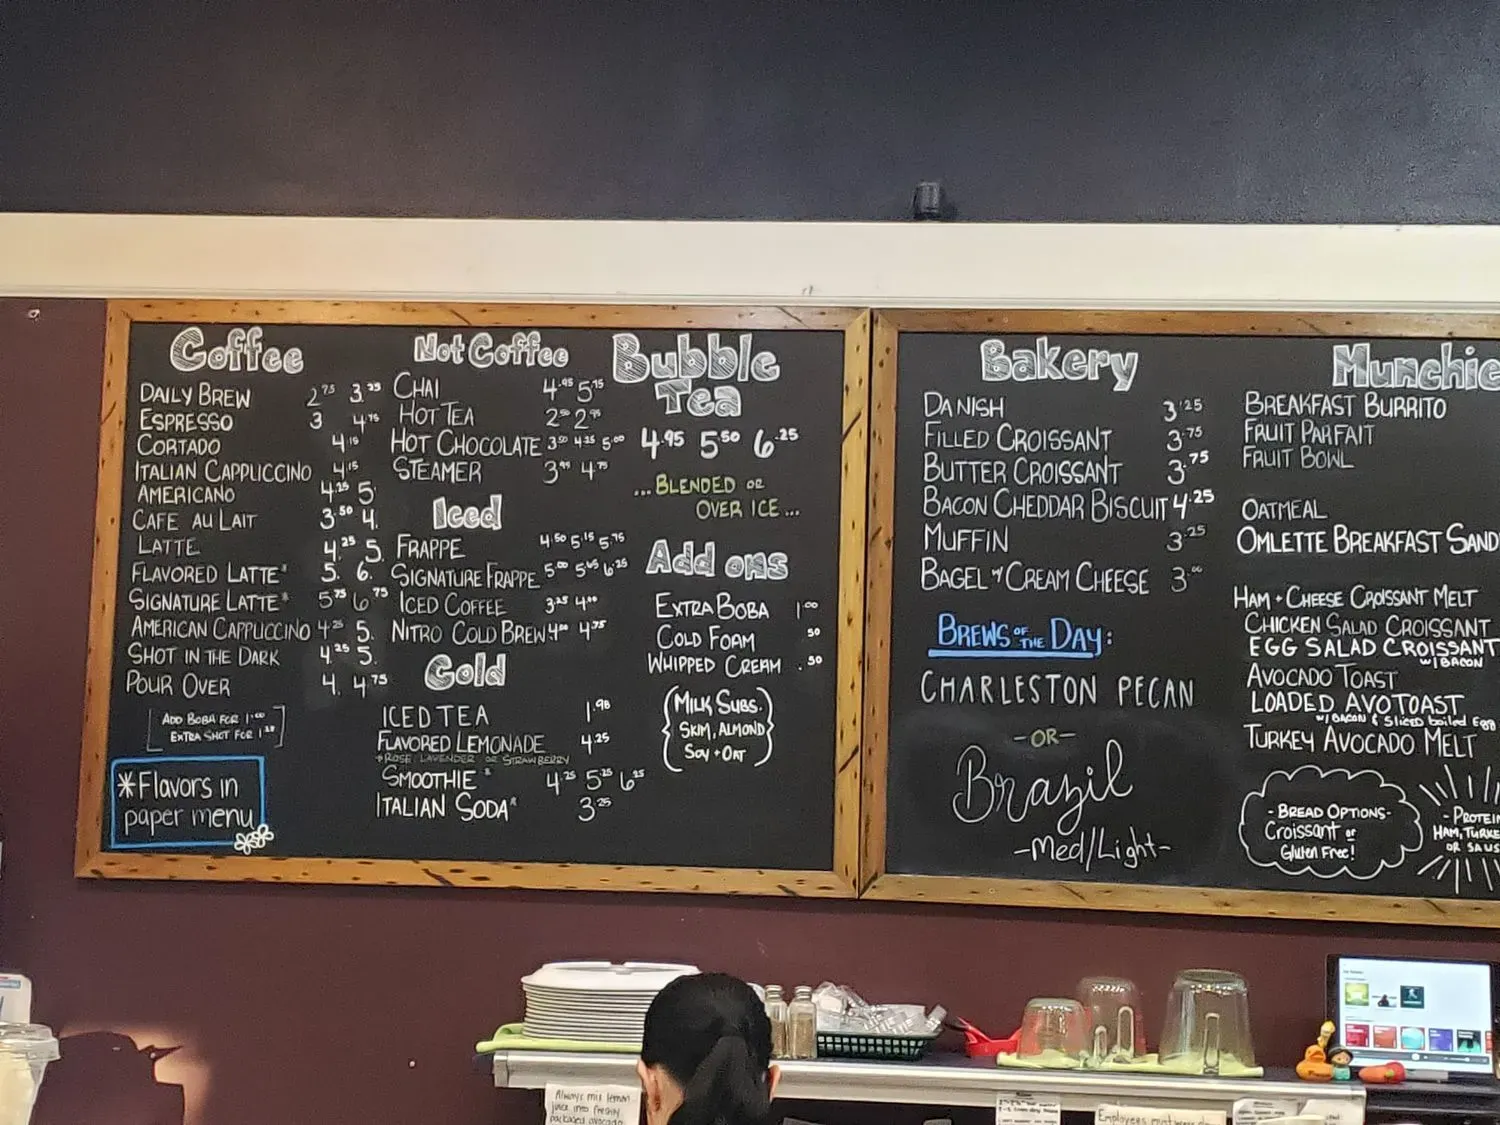 Coffee
DAILY BREW 2.75 3.25
ESPRESSO 3 4.75
CORTADO 4.15
ITALIAN CAPPUCCINO 4.15
AMERICANO 4.25 5.
CAFE AU LAIT 3.50 4.
LATTE 4.25 5.
FLAVORED LATTE* 5. 6.
SIGNATURE LATTE* 5.75 6.75
AMERICAN CAPPUCCINO 4.25 5.
SHOT IN THE DARK 4.25 5.
POUR OVER 4. 4.75
[ADD BOBA FOR 1.00
EXTRA SHOT FOR 1.20]
*Flavors in
paper menu
Not Coffee
CHAI 4.95 5.15
HOT TEA 2.50 2.95
HOT CHOCOLATE 3.50 4.25 5.00
STEAMER 3.95 4.75
Iced
FRAPPE 4.50 5.15 5.75
SIGNATURE FRAPPE 5.00 5.65 6.25
ICED COFFEE 3.25 4.00
NITRO COLD BREW 4.00 4.75
Cold
ICED TEA 1.98
FLAVORED LEMONADE 4.25
*ROSE LAVENDER OR STRAWBERRY
SMOOTHIE* 4.25 5.25 6.25
ITALIAN SODA* 3.25
Bubble
Tea
4.95 5.50 6.25
...BLENDED OR
OVER ICE...
Add ons
EXTRA BOBA 1.00
COLD FOAM 50
WHIPPED CREAM .50
{MILK SUBS.
SKIM, ALMOND
SOY + OAT}
Bakery
DANISH 3.25
FILLED CROISSANT 3.75
BUTTER CROISSANT 3.75
BACON CHEDDAR BISCUIT 4.25
MUFFIN 3.25
BAGEL W/ CREAM CHEESE 3.00
BREWS OF THE DAY:
CHARLESTON PECAN
-OR-
Brazil
-Med/Light-
Munchie
BREAKFAST BURRITO
FRUIT PARFAIT
FRUIT BOWL
OATMEAL
OMLETTE BREAKFAST SAND
HAM + CHEESE CROISSANT MELT
CHICKEN SALAD CROISSANT
EGG SALAD CROISSANT
W/ BACON
AVOCADO TOAST
LOADED AVOTOAST
W/ BACON & Sliced boiled Egg
TURKEY AVOCADO MELT
- BREAD OPTIONS-
Croissant or
Gluten Free!
- PROTEIN
HAM, TURKE
OR SAUS
Always mix lemon
juice into freshly
packaged avocado
Employees must